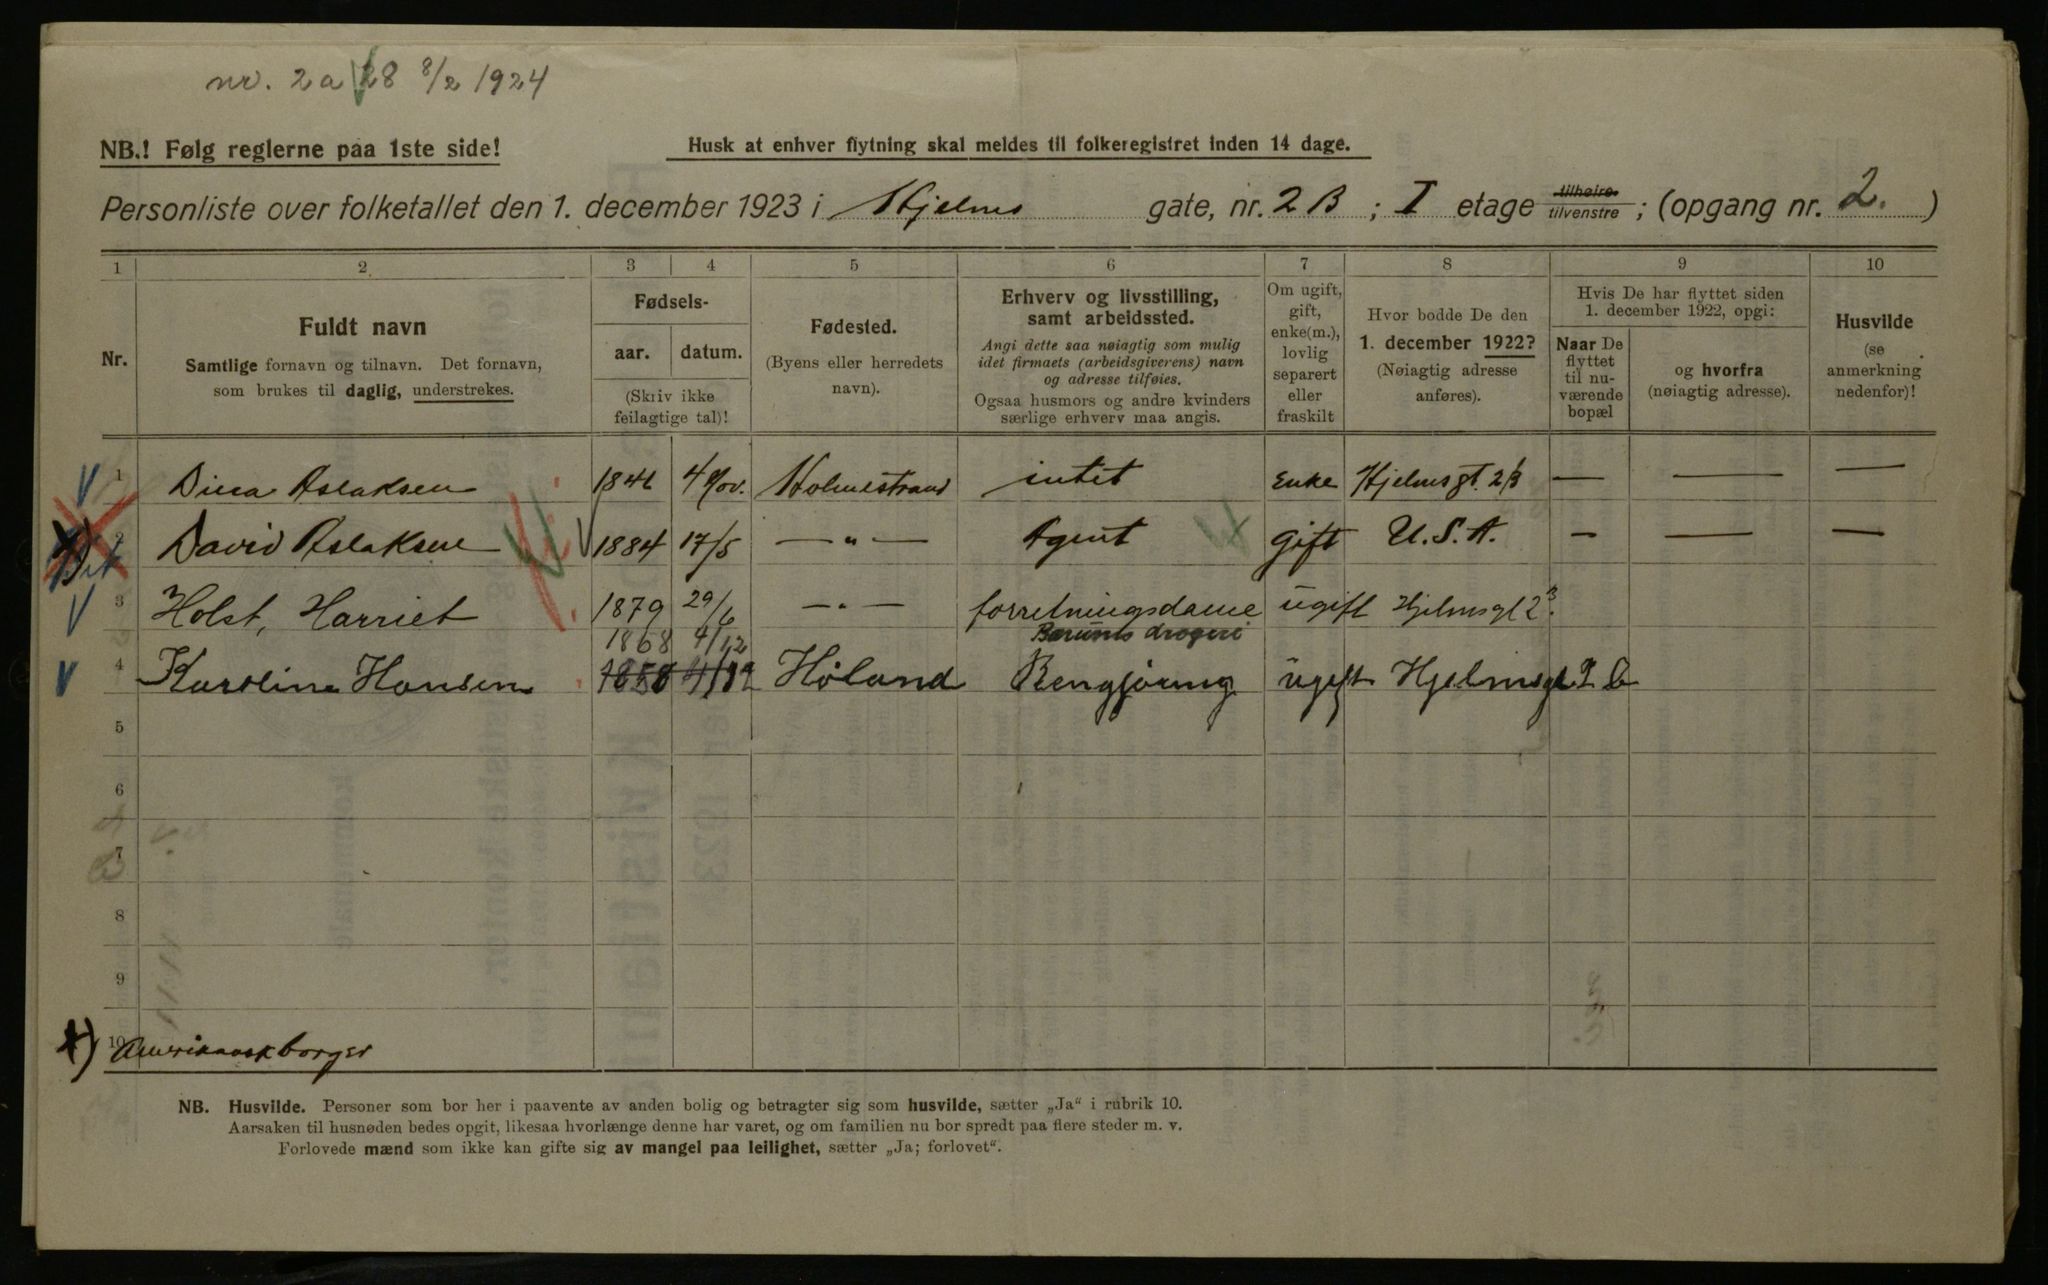 nr. 2a 28 8/2 1924
NB.! Følg reglerne paa 1ste side!
Husk at enhver flytning skal meldes til folkeregistret inden 14 dage.
Personliste over folketallet den 1. december 1923 i Hjelms gate, nr. 2B ; I etage tilhøire tilvenstre ; (opgang nr. 2. )
1 2 3 4 5 6 7 8 9 10
Nr.
Fuldt navn
Samtlige fornavn og tilnavn. Det fornavn,
som brukes til daglig, understrekes.
Fødsels-
aar. datum.
(Skriv ikke
feilagtige tal)!
Fødested.
(Byens eller herredets
navn).
Erhverv og livsstilling,
samt arbeidssted.
Angi dette saa nøiagtig som mulig
idet firmaets (arbeidsgiverens) navn
og adresse tilføies.
Ogsaa husmors og andre kvinders
særlige erhverv maa angis.
Om ugift,
gift,
enke(m.),
lovlig
separert
eller
fraskilt
Hvor bodde De den
1. december 1922?
(Nøiagtig adresse
anføres).
Hvis De har flyttet siden
1. december 1922, opgi:
Naar De
flyttet
til nu-
værende
bopæl
og hvorfra
(nøiagtig adresse).
Husvilde
(se
anmerkning
nedenfor)!
1 Dina Aslaksen 1846 4 Nov. Holmestrand intet Enke Hjelmsgt. 2B — — —
2 David Aslaksen 1884 17/5 — „ — Agent gift U.S.A. — — —
3 Holst, Harriet 1879 29/6 — „ — forretningsdame ugift Hjelmsgt 2B.
1868 4/12 Bærums drogeri
4 Karoline Hansen 1858 4/12 Høland Rengjøring ugift Hjelmsgt 2 b
5
6
7
8
9
10
x) Amerikansk borger
NB. Husvilde. Personer som bor her i paavente av anden bolig og betragter sig som husvilde, sætter „Ja“ i rubrik 10.
Aarsaken til husnøden bedes opgit, likesaa hvorlænge denne har varet, og om familien nu bor spredt paa flere steder m. v.
Forlovede mænd som ikke kan gifte sig av mangel paa leilighet, sætter „Ja; forlovet“.